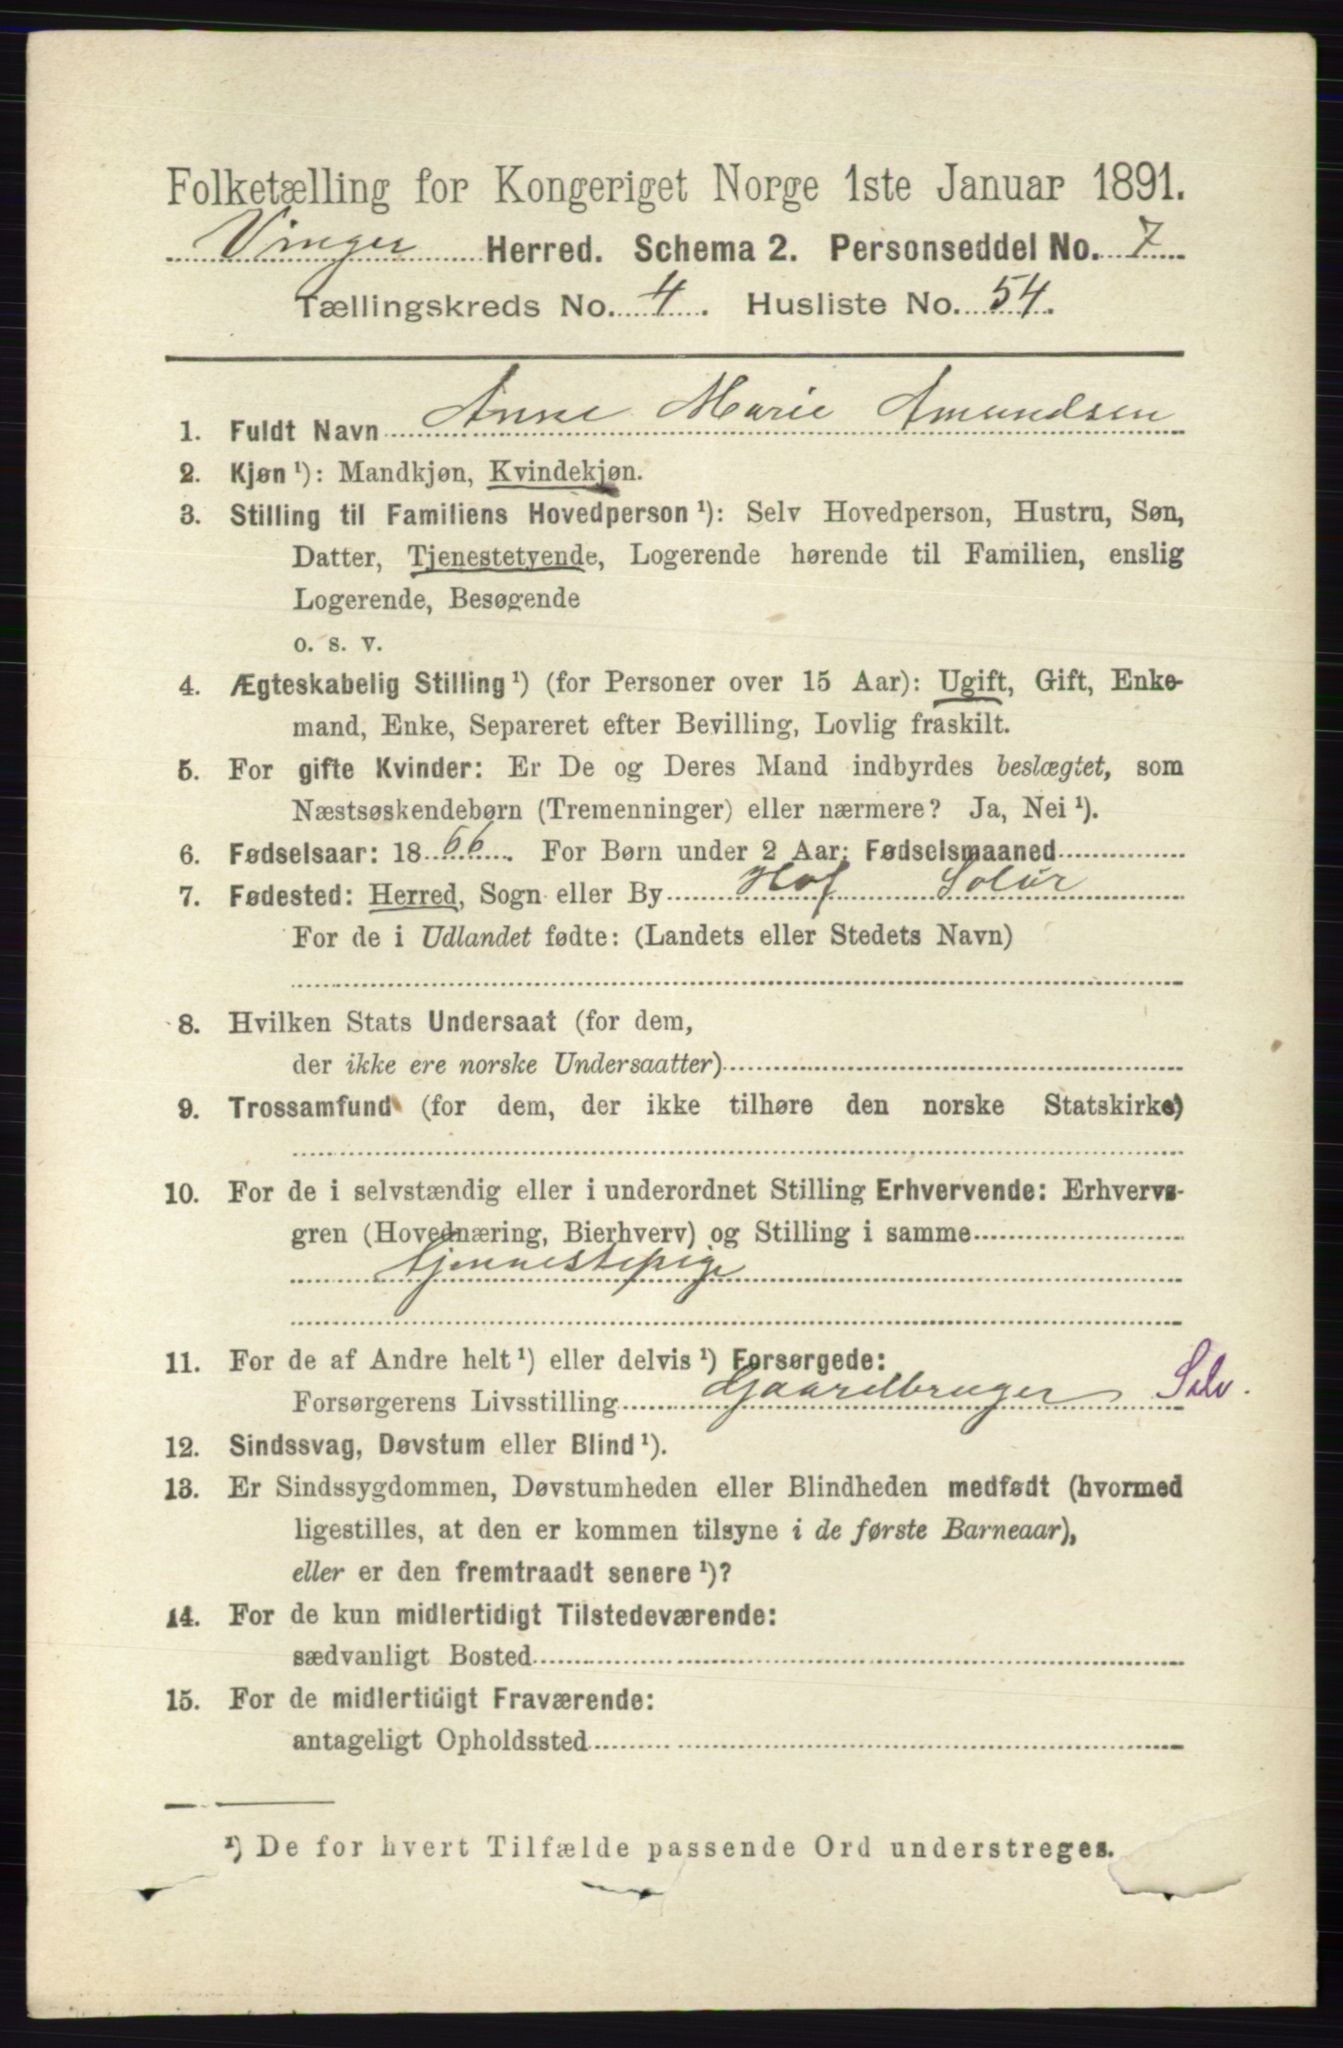 Folketælling for Kongeriget Norge 1ste Januar 1891.
Vinger Herred. Schema 2. Personseddel No. 7
Tællingskreds No. 4. Husliste No. 54.
1. Fuldt Navn Anne Marie Amundsen
2. Kjøn ¹): Mandkjøn, Kvindekjøn.
3. Stilling til Familiens Hovedperson ¹): Selv Hovedperson, Hustru, Søn,
Datter, Tjenestetyende, Logerende hørende til Familien, enslig
Logerende, Besøgende
o. s. v.
4. Ægteskabelig Stilling ¹) (for Personer over 15 Aar): Ugift, Gift, Enke-
mand, Enke, Separeret efter Bevilling, Lovlig fraskilt.
5. For gifte Kvinder: Er De og Deres Mand indbyrdes beslægtet, som
Næstsøskendebørn (Tremenninger) eller nærmere? Ja, Nei ¹).
6. Fødselsaar: 1866. For Børn under 2 Aar: Fødselsmaaned
7. Fødested: Herred, Sogn eller By Hof Solør
For de i Udlandet fødte: (Landets eller Stedets Navn)
8. Hvilken Stats Undersaat (for dem,
der ikke ere norske Undersaatter)
9. Trossamfund (for dem, der ikke tilhøre den norske Statskirke)
10. For de i selvstændig eller i underordnet Stilling Erhvervende: Erhvervs-
gren (Hovednæring, Bierhverv) og Stilling i samme
tjennestepige
11. For de af Andre helt ¹) eller delvis ¹) Forsørgede:
Forsørgerens Livsstilling Gaardbruger Selv.
12. Sindssvag, Døvstum eller Blind ¹).
13. Er Sindssygdommen, Døvstumheden eller Blindheden medfødt (hvormed
ligestilles, at den er kommen tilsyne i de første Barneaar),
eller er den fremtraadt senere ¹)?
14. For de kun midlertidigt Tilstedeværende:
sædvanligt Bosted
15. For de midlertidigt Fraværende:
antageligt Opholdssted
¹) De for hvert Tilfælde passende Ord understreges.